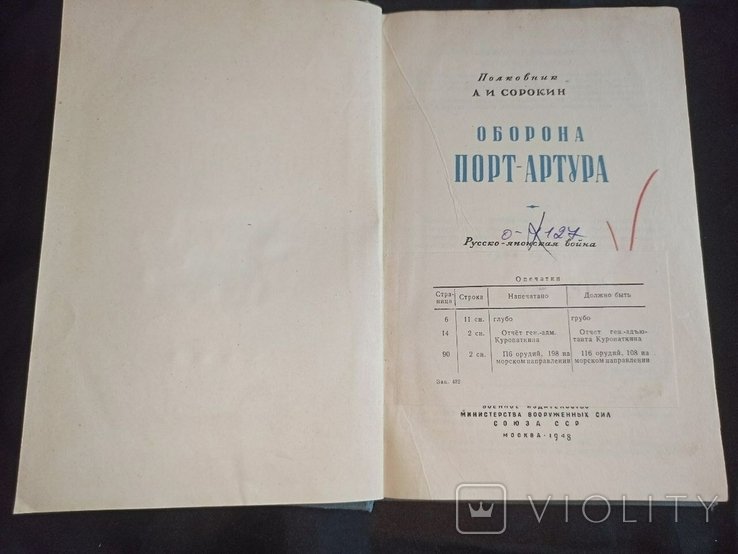 Полковник
А И СОРОКИН
ОБОРОНА
ПОРТ-АРТУРА
о-127
Русско-японская война
Опечатки
Стра-ница Строка Напечатано Должно быть
6 11 сн. глубо грубо
14 2 сн. Отчёт ген.-адм. Куропаткина Отчет ген.-адъю-танта Куропаткина
90 2 сн. П6 орудий, 198 на морском направлении 116 орудий, 108 на морском направлении
Зак. 432
ВОЕННОЕ ИЗДАТЕЛЬСТВО
МИНИСТЕРСТВА ВООРУЖЕННЫХ СИЛ
СОЮЗА ССР
МОСКВА - 1948
VIOLITY